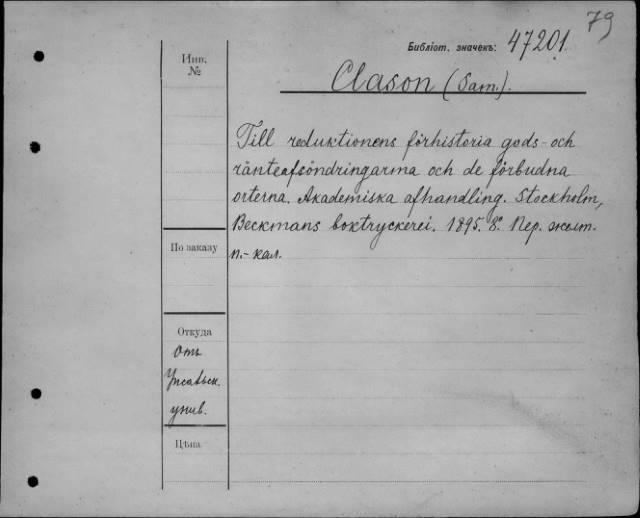 79
Библіот. значекъ: 47201.
Инв.
№
Clason (Sam.).
Till reduktionens förhistoria gods- och
ränteafsöndringarma och de förbudna
orterna. Akademiska afhandling. Stockholm,
Beckmans boktryckerei. 1895. 8º. Пер. желт.
п.-кал.
По заказу
Откуда
Отъ
Упсальск.
унив.
Цѣна